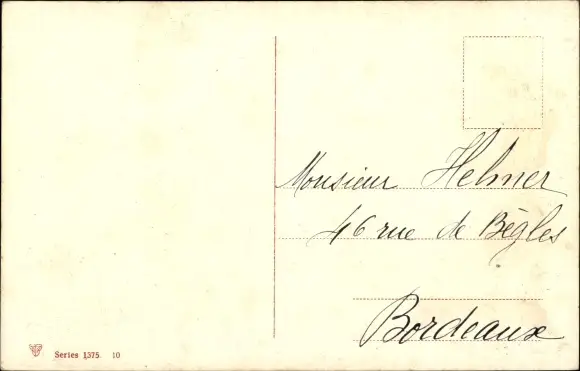 Monsieur Helmer
46 rue de Bègles
Bordeaux
Series 1375. 10